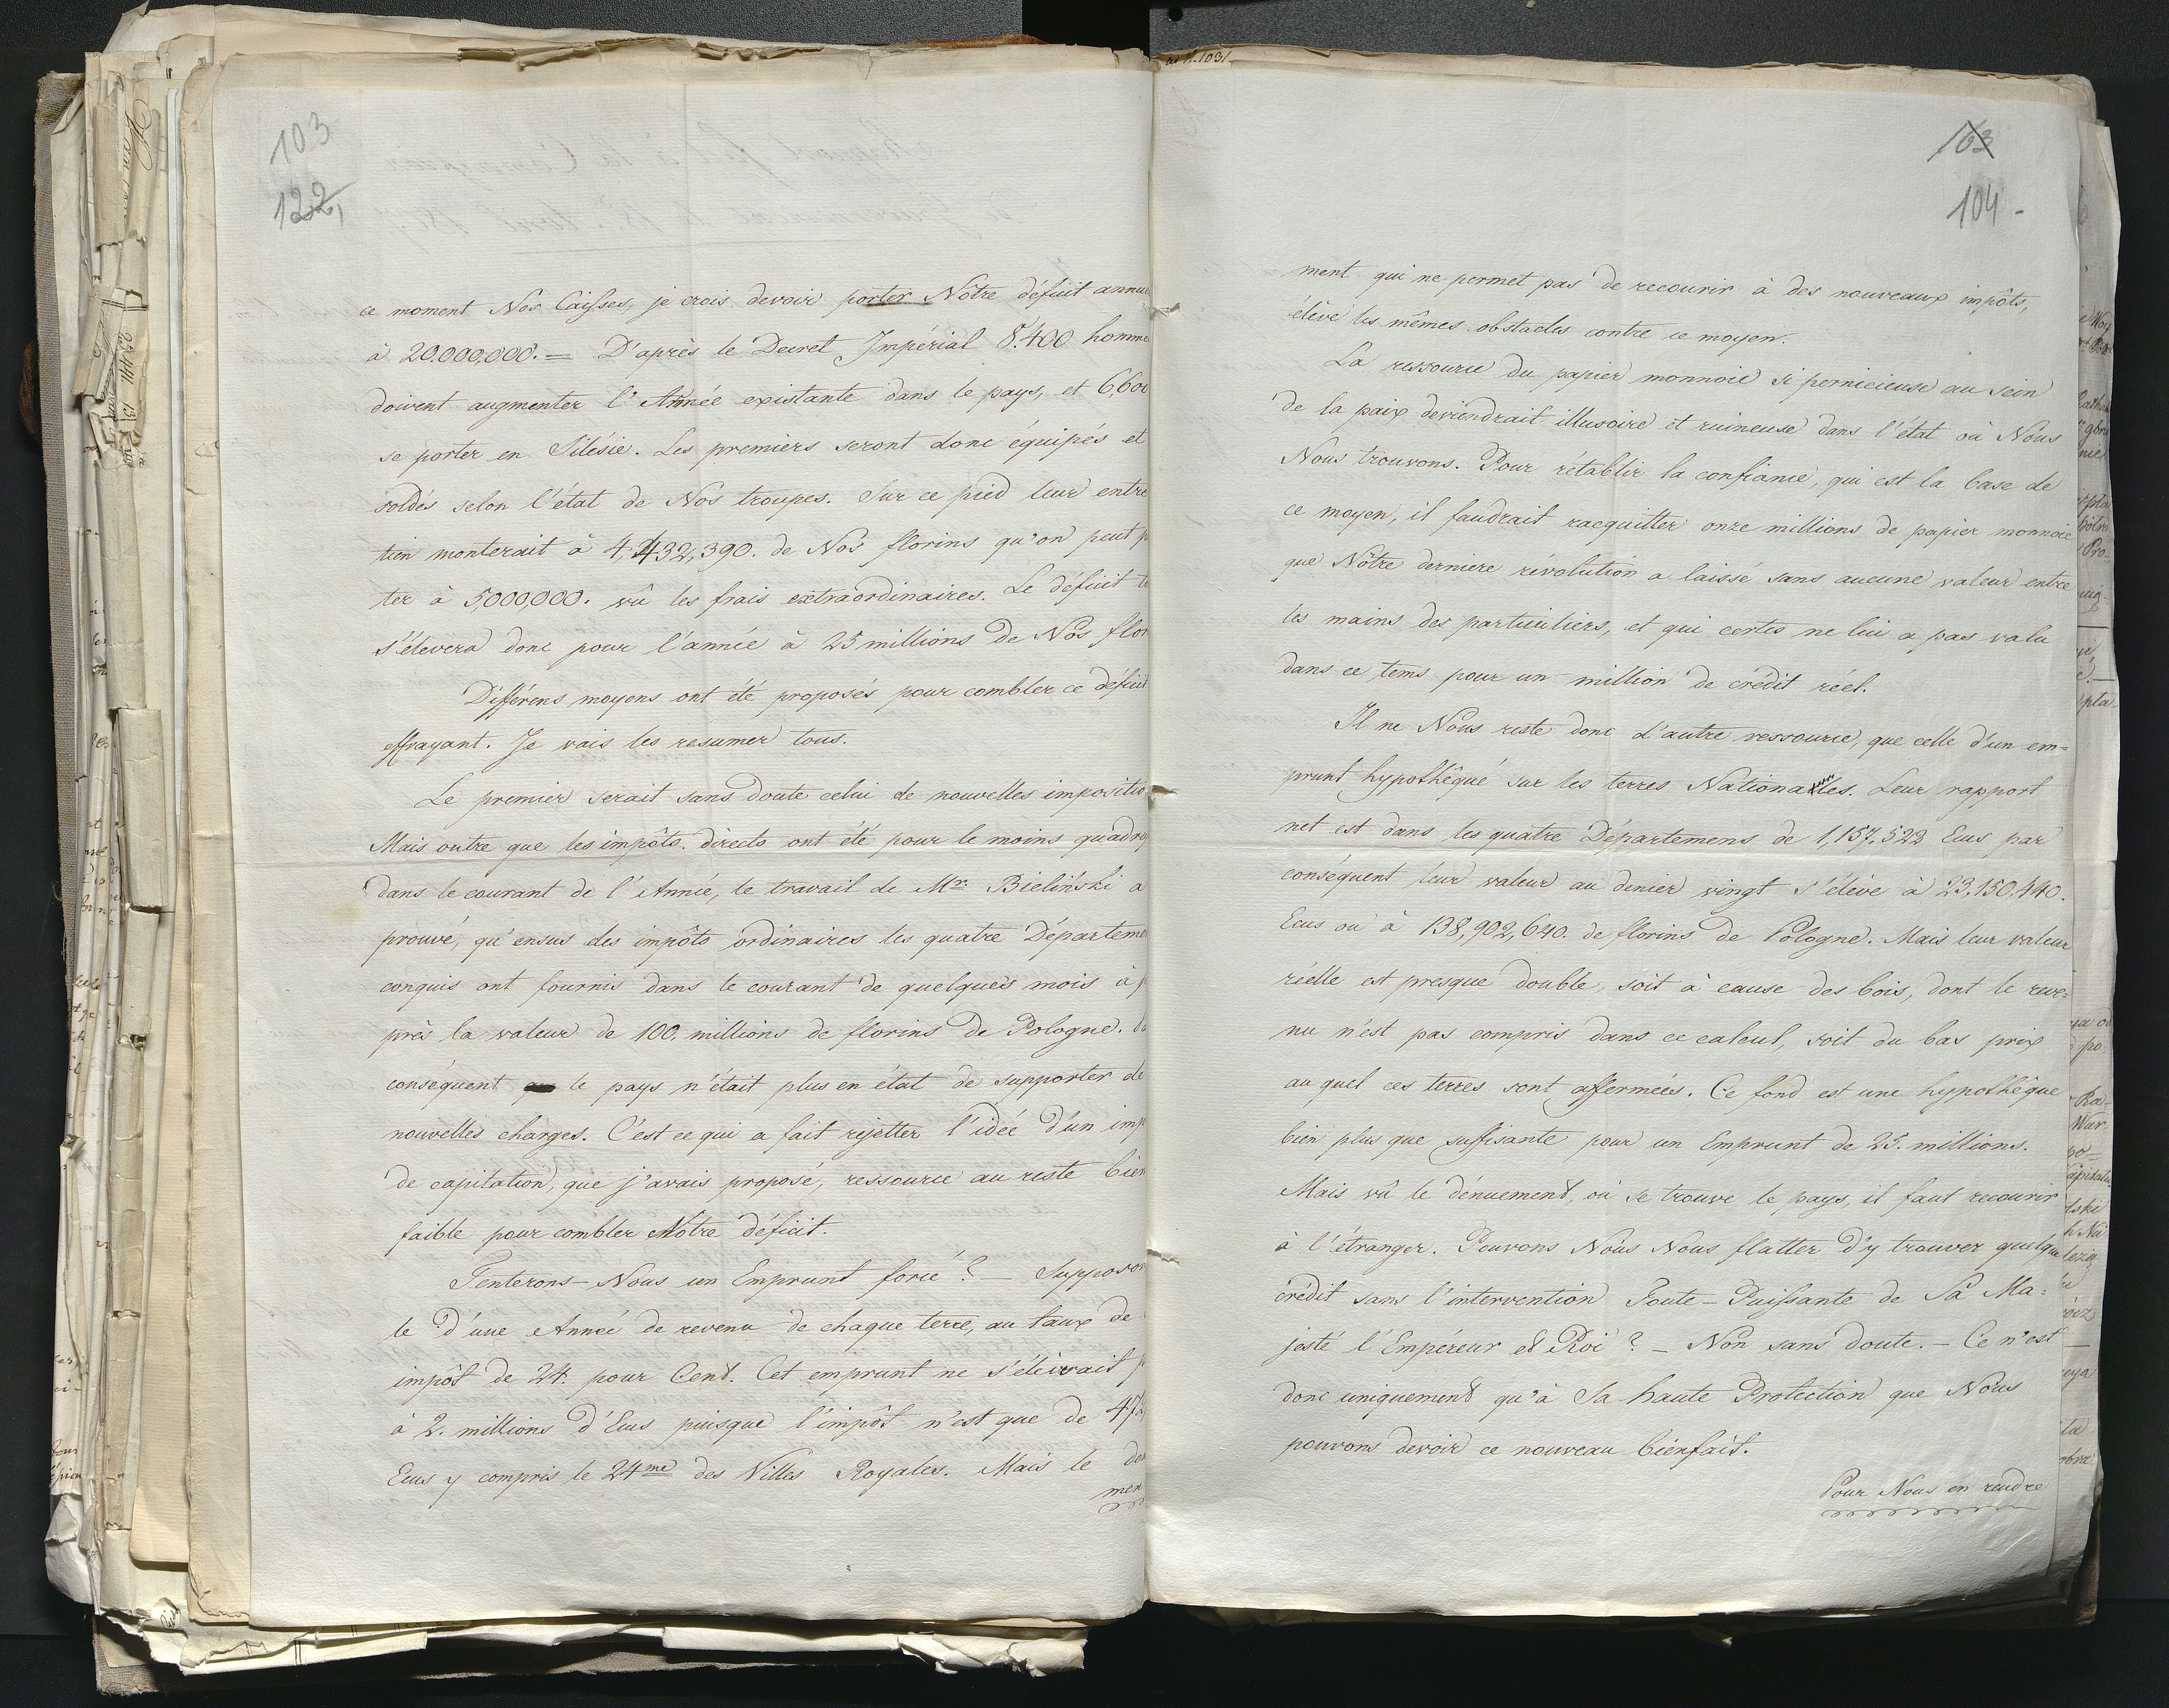 103
122,
ce moment Nos Caisses, je crois devoir porter Nôtre déficit annue
à 20.000,000. = D'après le Decret Impérial 8.400 homme
doivent augmenter l'Armée existante dans le pays, et 6,600
se porter en Silésie. Les premiers seront donc équipés et
soldés selon l'état de Nos troupes. Sur ce pied leur entre
tien monterait à 4,432,390. de Nos florins qu'on peut p
ter à 5,000,000. vû les frais extraordinaires. Le déficit t
s'élevera donc pour l'année à 25 millions de Nos flor
Différens moyens ont été proposés pour combler ce déficit
effrayant. Je vais les resumer tous.
Le premier serait sans doute celui de nouvelles impositio
Mais outre que les impôts directs ont été pour le moins quadru
dans le courant de l'Année, le travail de Mr. Bieliński a
prouvé, qu'ensus des impôts ordinaires les quatre Départeme
conquis ont fournis dans le courant de quelques mois à p
près la valeur de 100. millions de florins de Pologne.
conséquent le pays n'était plus en état de supporter de
nouvelles charges. C'est ce qui a fait rejetter l'idée d'un imp
de capitation, que j'avais proposé, ressource au reste bien
faible pour combler Nôtre déficit.
Tenterons-Nous un Emprunt forcé? — Supposon
le d'une Année de revenu de chaque terre, au taux de
impôt de 24. pour Cent. Cet emprunt ne s'éleverait p
à 2. millions d'Ecus puisque l'impôt n'est que de 473
Ecus y compris le 24me des Villes Royales. Mais le
men
as N. 1031
103
104 -
ment qui ne permet pas de recourir à des nouveaux impôts,
élève les mêmes obstacles contre ce moyen.
La ressource du papier monnoie si pernicieuse au sein
de la paix deviendrait illusoire et ruineuse dans l'état où Nous
Nous trouvons. Pour rétablir la confiance, qui est la base de
ce moyen, il faudrait racquitter onze millions de papier monnoie
que Nôtre derniere révolution a laissé sans aucune valeur entre
les mains des particuliers, et qui certes ne lui a pas valu
dans ce tems pour un million de crédit réel.
Il ne Nous reste donc d'autre ressource, que celle d'un em=
prunt hypothêqué sur les terres Nationales. Leur rapport
net est dans les quatre Départemens de 1,157,522 Ecus par
conséquent leur valeur au denier vingt s'élève à 23,150,440.
Ecus ou à 138,902,640. de florins de Pologne. Mais leur valeur
réelle est presque double, soit à cause des bois, dont le reve=
nu n'est pas compris dans ce calcul, soit du bas prix
au quel ces terres sont affermées. Ce fond est une hypothêque
bien plus que suffisante pour un Emprunt de 25. millions.
Mais vû le dénuement, où se trouve le pays, il faut recourir
à l'étranger. Pouvons Nous Nous flatter d'y trouver quelque
crédit sans l'intervention Toute-Puissante de Sa Ma=
jesté l'Empéreur et Roi? — Non sans doute. — Ce n'est
donc uniquement qu'à Sa haute Protection que Nous
pouvons devoir ce nouveau bienfait.
Pour Nous en rendre